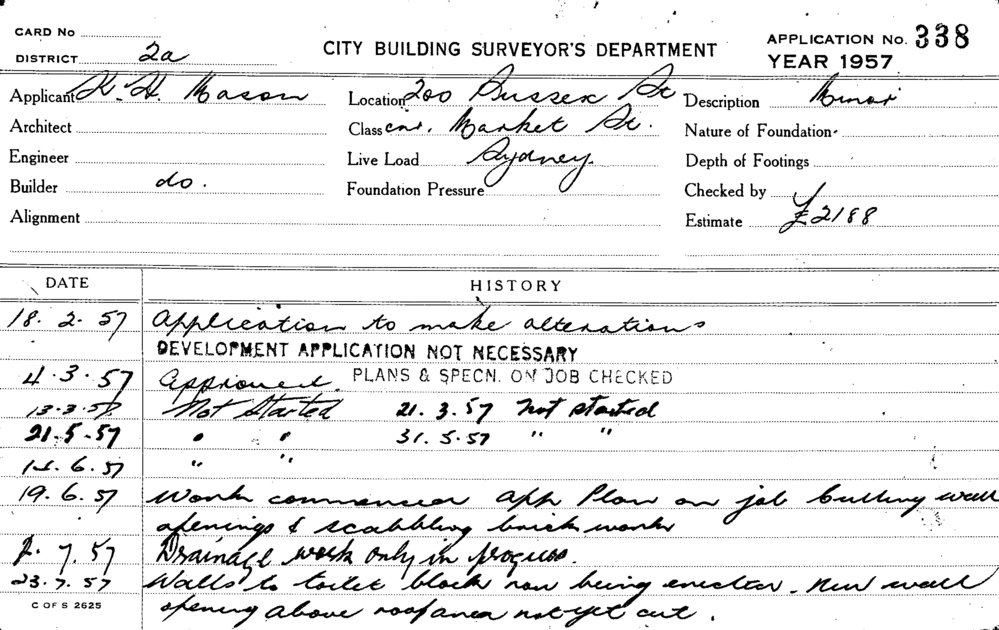 CARD No
DISTRICT 2a
CITY BUILDING SURVEYOR'S DEPARTMENT
APPLICATION No. 338
YEAR 1957
Applicant K. H. Mason
Location 200 Sussex St
Description Minor
Architect
Class cnr. Market St.
Nature of Foundation
Engineer
Live Load Sydney.
Depth of Footings
Builder do.
Foundation Pressure
Checked by
Alignment
Estimate £2188
DATE HISTORY
18. 2. 57 Application to make alterations
DEVELOPMENT APPLICATION NOT NECESSARY
4. 3. 57 Approved. PLANS & SPECN. ON JOB CHECKED
13.3.57 Not Started 21. 3. 57 Not started
21. 5. 57 " " 31. 5. 57 " "
14. 6. 57 " "
19. 6. 57 Work commenced app Plan on job Cutting wall
openings & scabbling brick work
2. 7. 57 Drainage work only in progress.
23. 7. 57 Walls to toilet block now being erected. New wall
opening above roof area not yet cut.
C OF S 2625